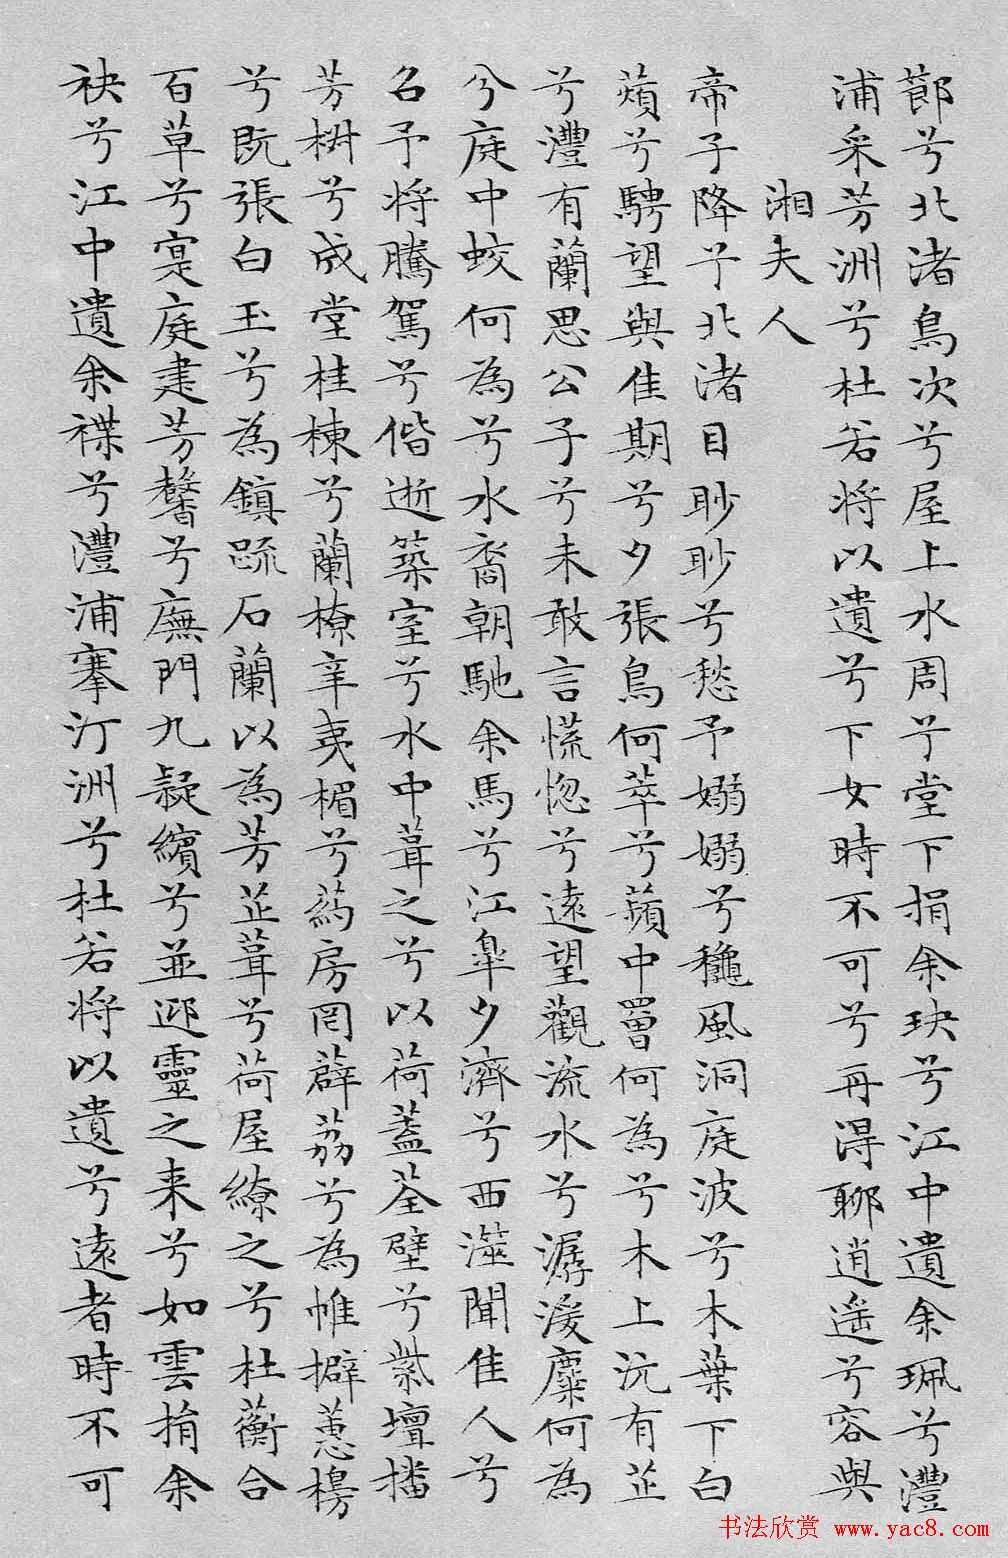 節兮北渚鳥次兮屋上水周兮堂下捐余玦兮江中遺余珮兮澧
浦采芳洲兮杜若將以遺兮下女時不可兮再得聊逍遙兮容與
湘夫人
帝子降兮北渚目眇眇兮愁予嫋嫋兮龝風洞庭波兮木葉下白
薠兮騁望與佳期兮夕張鳥何萃兮蘋中罾何為兮木上沅有芷
兮澧有蘭思公子兮未敢言慌惚兮遠望觀流水兮潺湲麋何為
兮庭中蛟何為兮水裔朝馳余馬兮江皋夕濟兮西澨聞佳人兮
召予將騰駕兮偕逝築室兮水中葺之兮以荷蓋荃壁兮紫壇播
芳椒兮成堂桂棟兮蘭橑辛夷楣兮葯房罔薜荔兮為帷擗蕙櫋
兮既張白玉兮為鎮疏石蘭以為芳芷葺兮荷屋繚之兮杜蘅合
百草兮寔庭建芳馨兮廡門九疑繽兮並迎靈之来兮如雲捐余
袂兮江中遺余褋兮澧浦搴汀洲兮杜若將以遺兮遠者時不可
书法欣赏 www.yac8.com